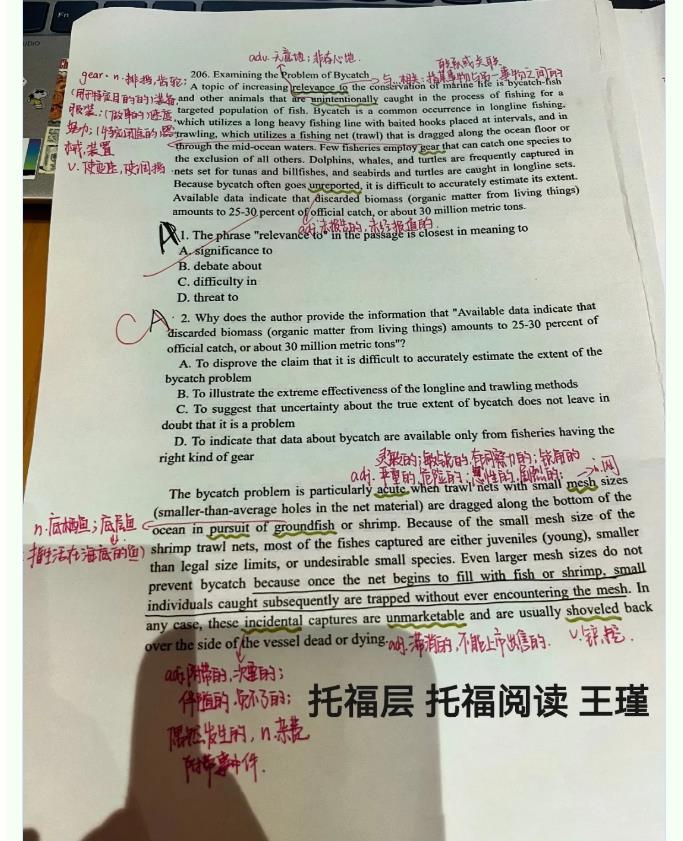 adv. 无意地；非存心地.
联系或关联
gear. n. 排挡,齿轮；
206. Examining the Problem of Bycatch
与…相关；指某事物与另一事物之间的
A topic of increasing relevance to the conservation of marine life is bycatch-fish
(用于特定目的的)装备
and other animals that are unintentionally caught in the process of fishing for a
targeted population of fish. Bycatch is a common occurrence in longline fishing,
which utilizes a long heavy fishing line with baited hooks placed at intervals, and in
trawling, which utilizes a fishing net (trawl) that is dragged along the ocean floor or
械,装置
through the mid-ocean waters. Few fisheries employ gear that can catch one species to
the exclusion of all others. Dolphins, whales, and turtles are frequently captured in
nets set for tunas and billfishes, and seabirds and turtles are caught in longline sets.
Because bycatch often goes unreported, it is difficult to accurately estimate its extent.
Available data indicate that discarded biomass (organic matter from living things)
amounts to 25-30 percent of official catch, or about 30 million metric tons.
adj.未报告的,未经报道的.
A
1. The phrase "relevance to" in the passage is closest in meaning to
A. significance to
B. debate about
C. difficulty in
D. threat to
C A
2. Why does the author provide the information that "Available data indicate that
discarded biomass (organic matter from living things) amounts to 25-30 percent of
official catch, or about 30 million metric tons"?
A. To disprove the claim that it is difficult to accurately estimate the extent of the
bycatch problem
B. To illustrate the extreme effectiveness of the longline and trawling methods
C. To suggest that uncertainty about the true extent of bycatch does not leave in
doubt that it is a problem
D. To indicate that data about bycatch are available only from fisheries having the
right kind of gear
灵敏的；敏锐的,有洞察力的；锐角的
adj. 严重的,危险的；急性的,剧烈的；
n.网
The bycatch problem is particularly acute when trawl nets with small mesh sizes
(smaller-than-average holes in the net material) are dragged along the bottom of the
n.底栖鱼；底层鱼
ocean in pursuit of groundfish or shrimp. Because of the small mesh size of the
指生活在海底的鱼)
shrimp trawl nets, most of the fishes captured are either juveniles (young), smaller
than legal size limits, or undesirable small species. Even larger mesh sizes do not
prevent bycatch because once the net begins to fill with fish or shrimp, small
individuals caught subsequently are trapped without ever encountering the mesh. In
any case, these incidental captures are unmarketable and are usually shoveled back
over the side of the vessel dead or dying.
adj.滞销的,不能上市出售的.
v.铲,挖.
adj.附带的,次要的；
伴随的,免不了的；
偶然发生的, n.杂费
附带事件.
托福层 托福阅读 王瑾